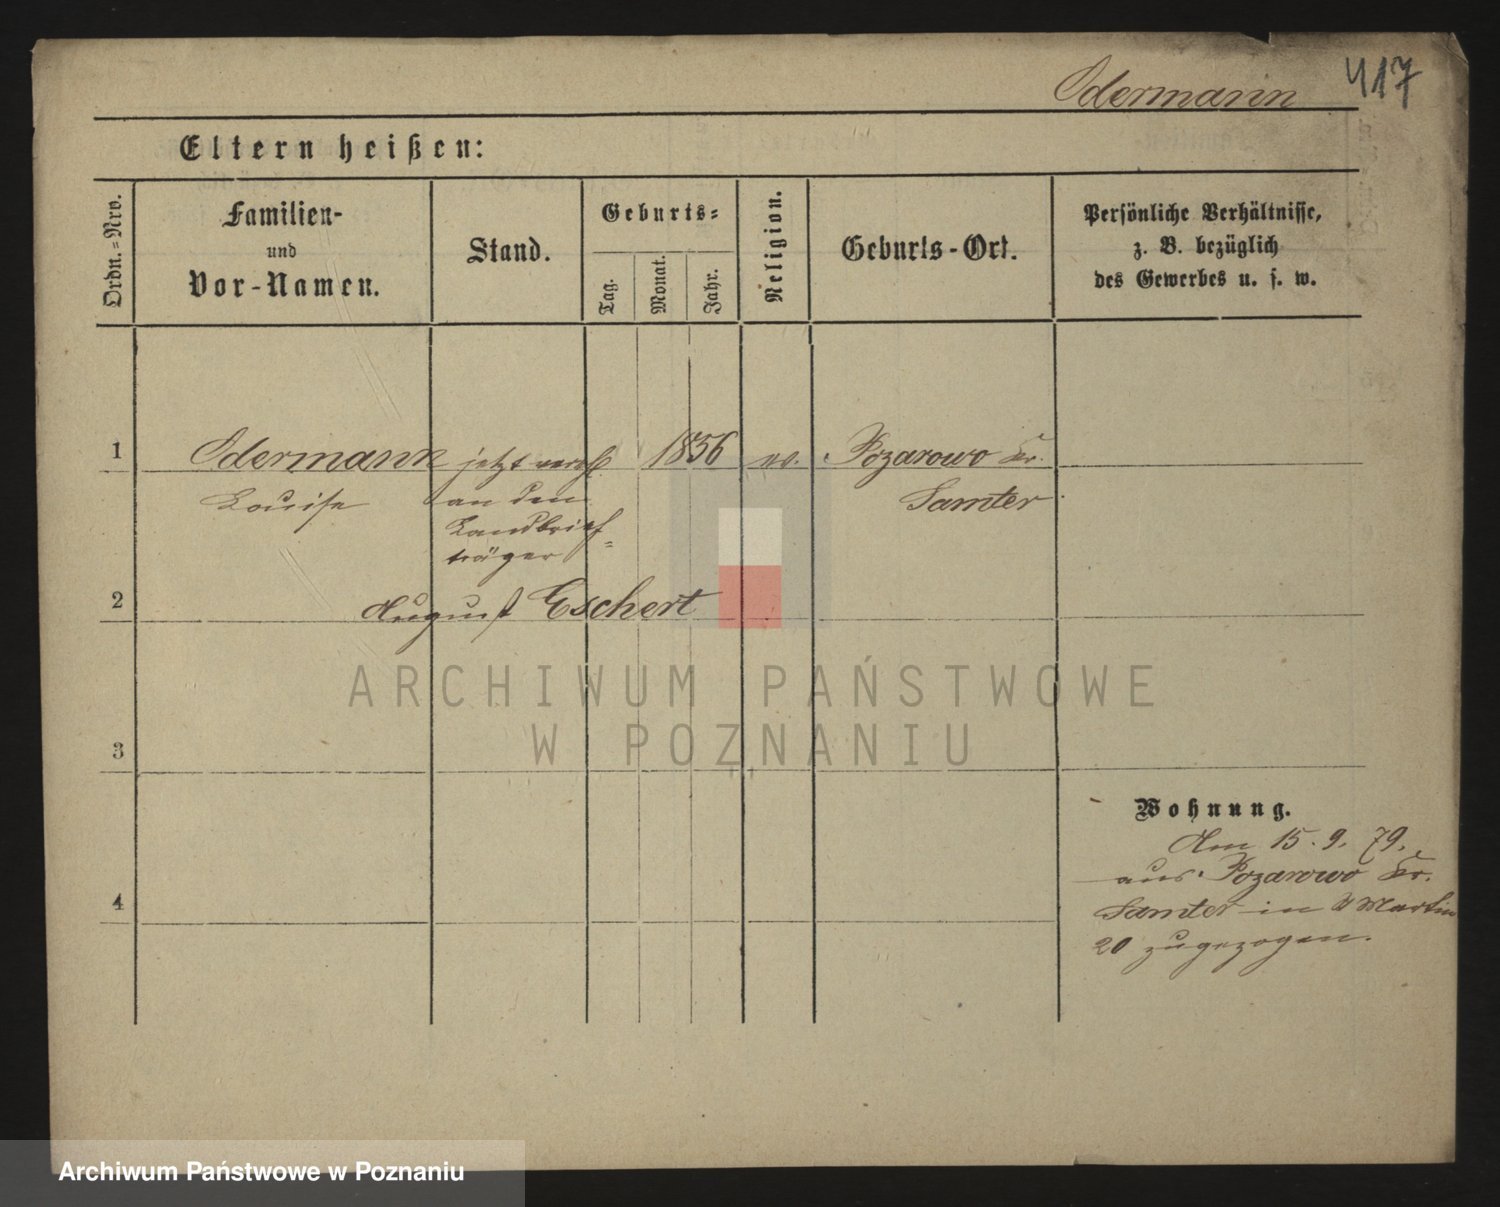 Odermann 417
Eltern heißen:
Ordn.=Nro.
Familien-
und
Vor-Namen.
Stand.
Geburts=
Tag.
Monat.
Jahr.
Religion.
Geburts-Ort.
Persönliche Verhältnisse,
z. B. bezüglich
des Gewerbes u. s. w.
1 Odermann jetzt vereh. 1856 ev. Pozarowo Kr.
Louise an den Samter
Landbrief=
träger
2 August Eschert
ARCHIWUM PAŃSTWOWE
W POZNANIU
3
Wohnung.
Am 15. 9. 79.
aus Pozarowo Kr.
4
Samter in St Martin
20 zugezogen.
Archiwum Państwowe w Poznaniu